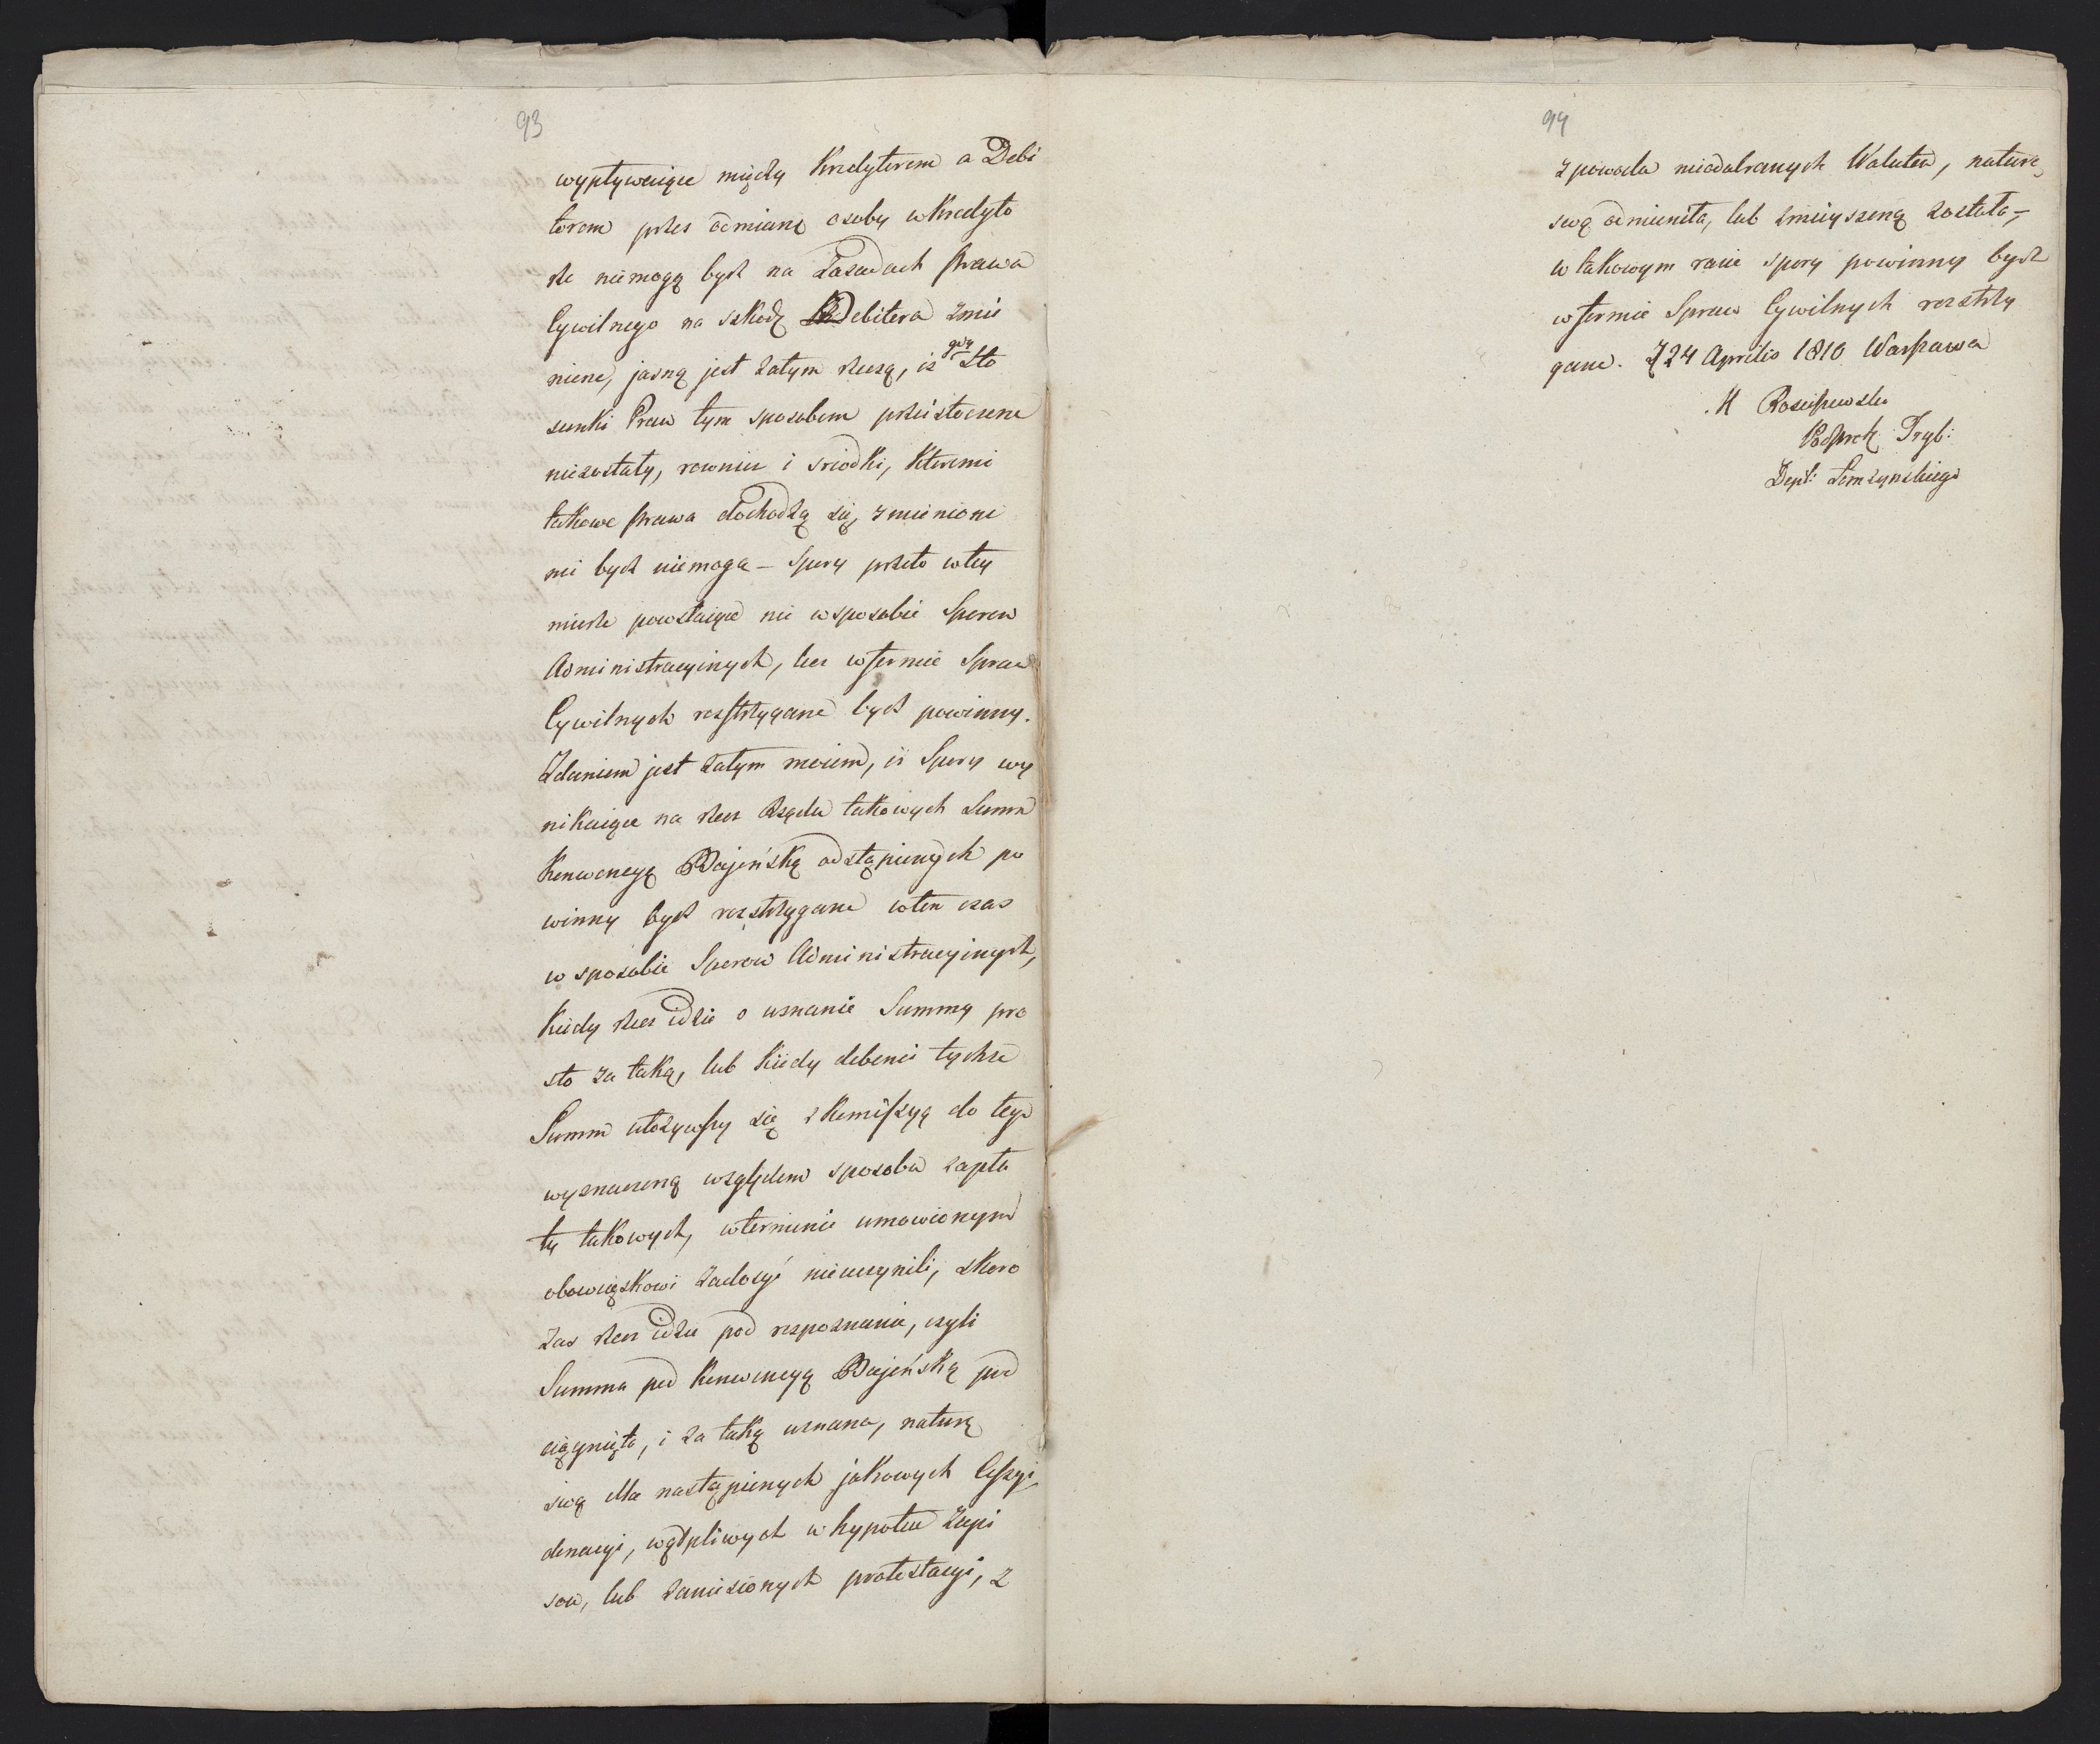 93
wypływaiące między Kredytorem a Debi
torem przez odmianę osoby w Kredyto
rze niemogą bydź na Zasadach Prawa
Cywilnego na szkodę Debitora zmie
nione, jasną jest zatym rzeczą, iz gdy Sto
sunki Praw tym sposobem przeistoczene
niezostały, rowniez i srzodki, ktoremi
takowe Prawa dochodzą się, zmienione
mi bydź niemogą – Spory przeto w tey
mierze powstaiące nie w sposobie Sporow
Administracyinych, lecz w formie Spraw
Cywilnych rozstrzygane bydź powinny.
Zdaniem jest zatym moiem, iż Spory wy
nikaiące na rzecz Rządu takowych Summ
Konwencyą Bajońską odstąpionych po
winny bydź rozstrzygane w ten czas
w sposobie Sporow Administracyinych,
kiedy rzecz idzie o uznanie Summy pro
sto za taką, lub kiedy debenci tychze
Summ ułozywszy się z Komissyą do tego
wyznaczoną względem sposobu zapła
ty takowych, w terminie umowionym
obowiązkowi zadosyć nieuczynili, skoro
zas rzecz idzie pod rozpoznanie, czyli
Summa pod Konwencyą Bajońską pod
ciągnięta, i za taką uznana, naturę
swą dla nastąpionych jakowych Cessyi,
donacyi, wątpliwych w hypotece Zapi
sow, lub zaniesionych protestacyi, z
94
z powodu nieodebranych Walutow, naturę
swą odmieniła, lub zmieyszoną została –
w takowym razie spory powinny bydź
w formie Spraw Cywilnych rozstrzy
gane. d 24 Aprilis 1810 Warszawa
Podprok Tryb:
Dept: Łomzynskiego